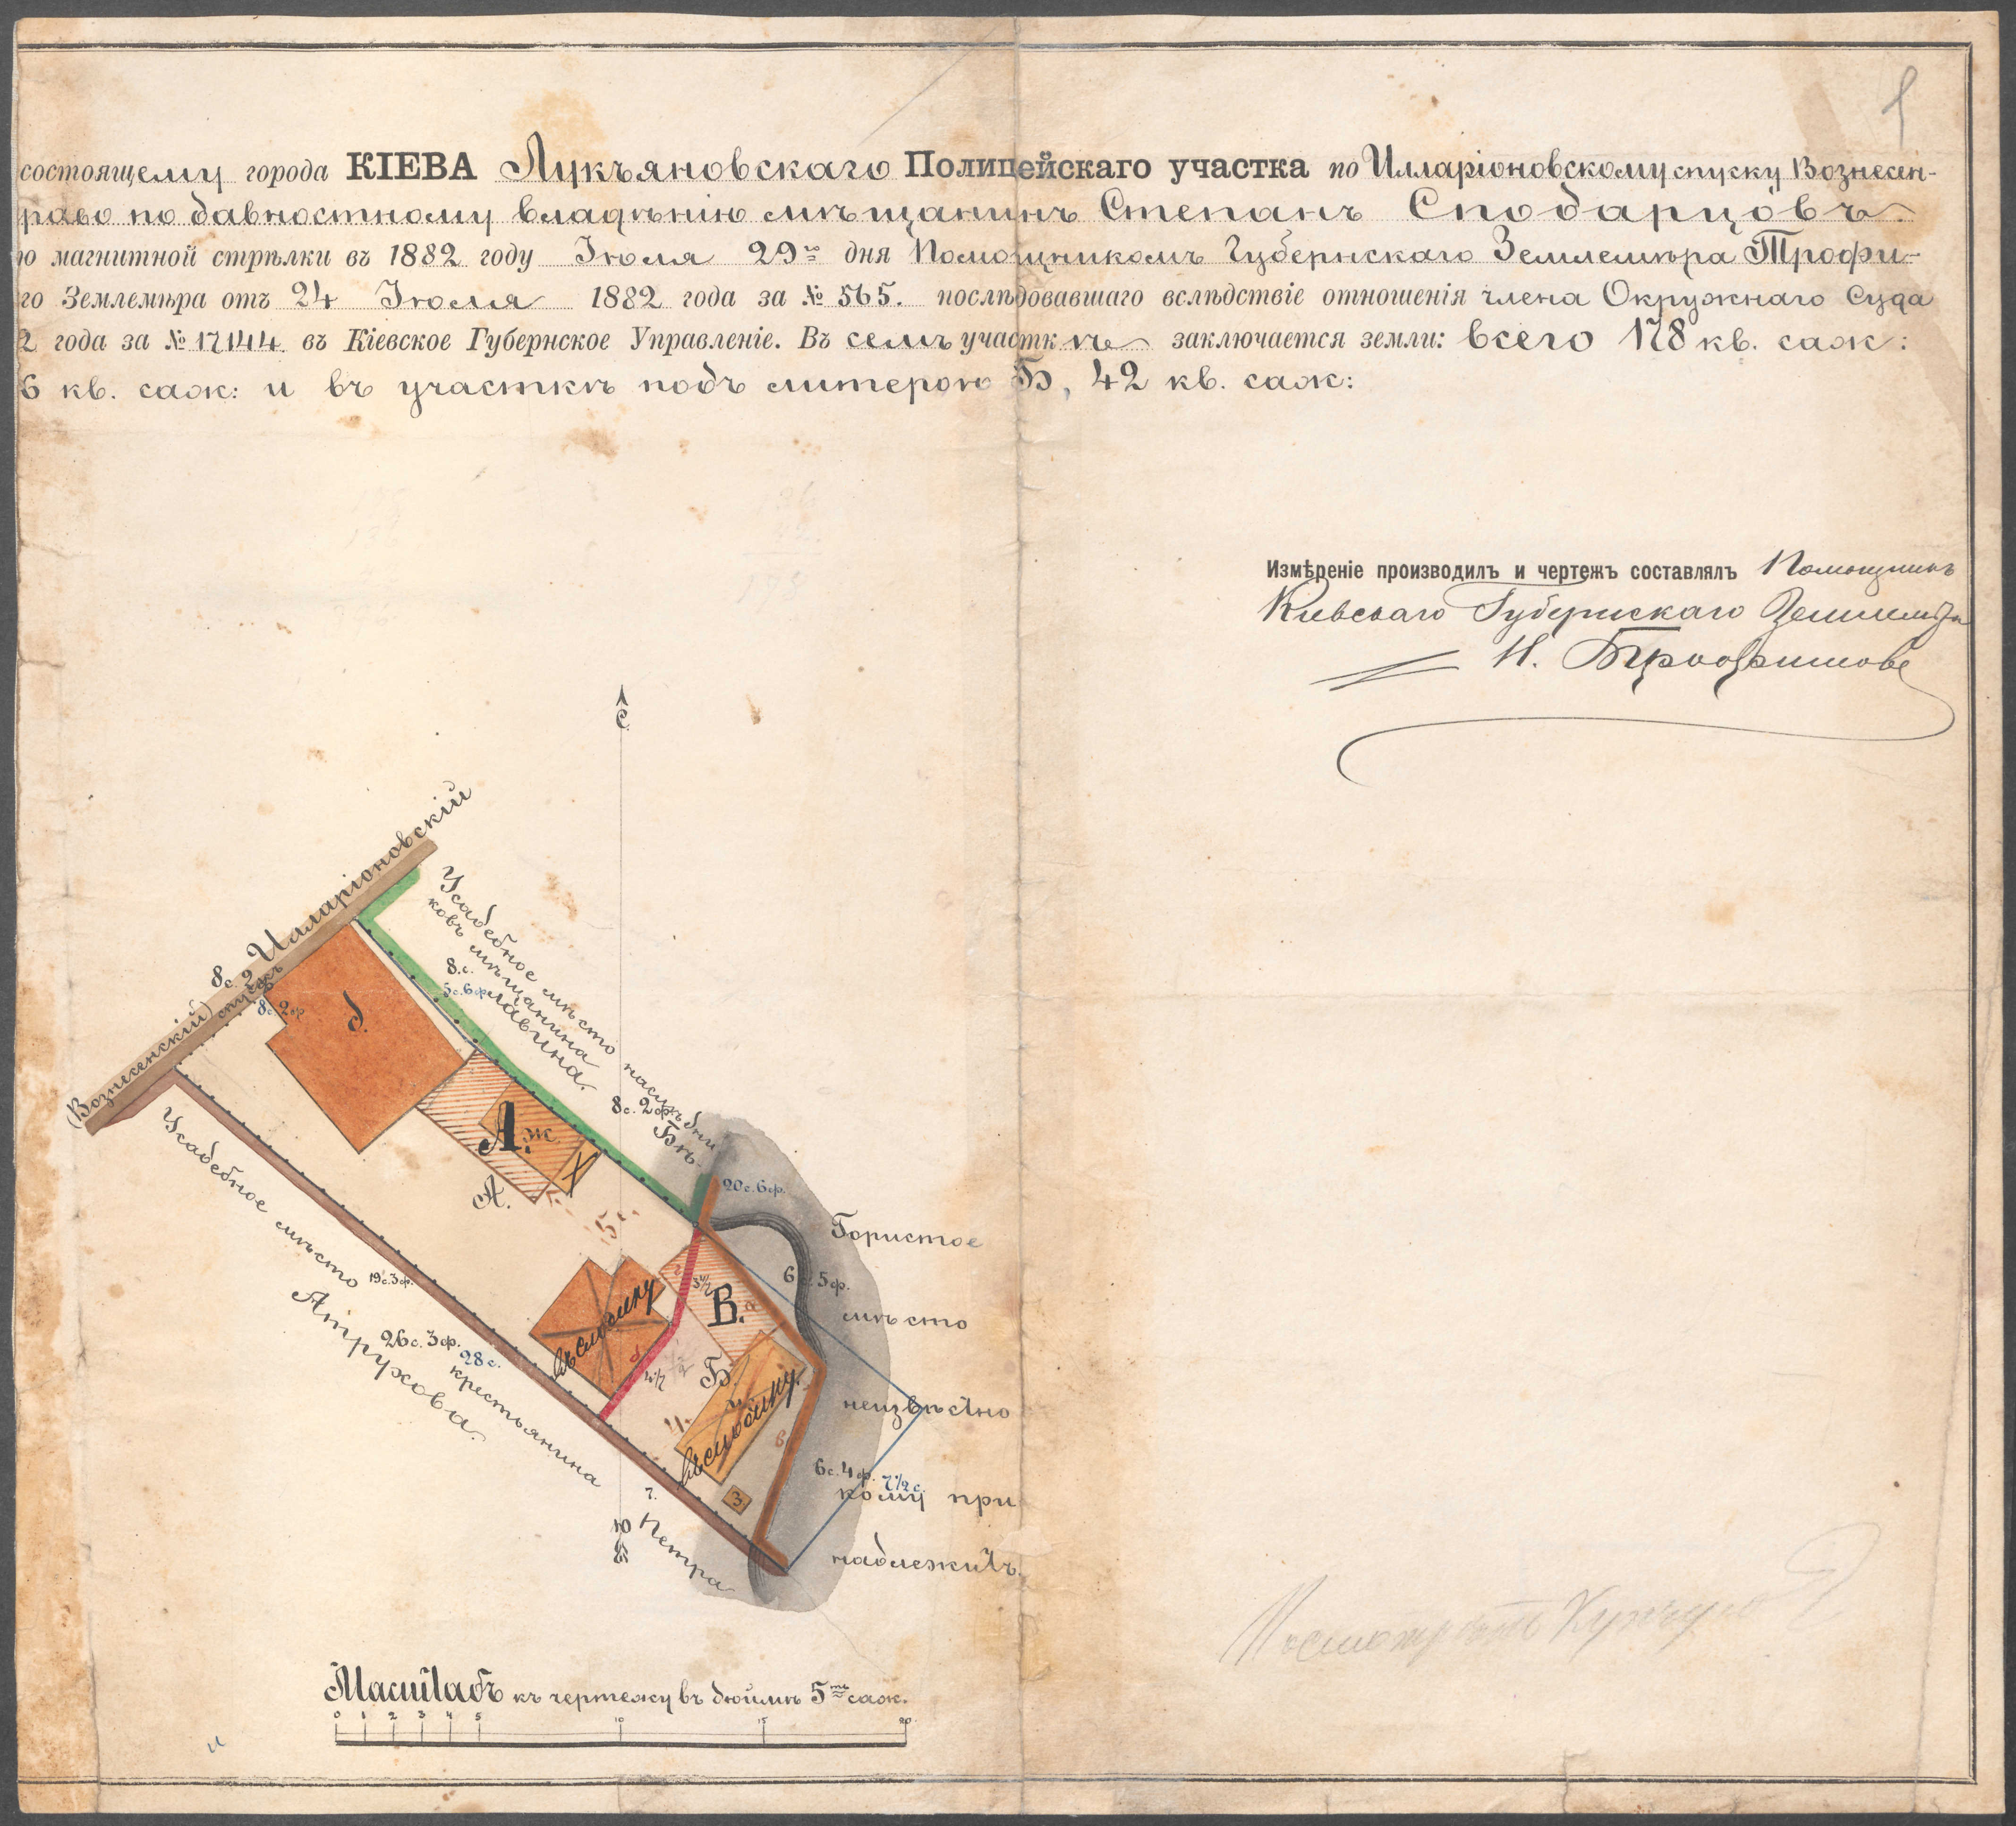 состоящему города КІЕВА Лукъяновскаго Полицейскаго участка по Илларіоновскому спуску Вознесен-
раво по давностному владѣнію мѣщанинъ Степанъ Сподарцовъ.
ю магнитной стрѣлки въ 1882 году Іюля 29го дня Помощникомъ Губернскаго Землемѣра Трофи-
го Землемѣра отъ 24 Іюля 1882 года за № 565. послѣдовавшаго вслѣдствіе отношенія члена Окружнаго Суда
2 года за № 17144 въ Кіевское Губернское Управленіе. Въ семъ участкѣ заключается земли: всего 178 кв. саж:
6 кв. саж: и въ участкѣ подъ литерою Б, 42 кв. саж:
Измѣреніе производилъ и чертежъ составлялъ Помощникъ
Кіевскаго Губернскаго Землемѣра
Н. Трофимовъ
С
Илларіоновскій
(Вознесенскій) спускъ
8 с. 2
8 с. 2 ф
Усадебное мѣсто наслѣдни
ковъ мѣщанина
Главина.
8. с.
5 с. 6 ф
8 с. 2 ф.
д.
А. ж.
А.
5 с.
20 с. 6 ф.
Усадебное мѣсто
крестьянина
Петра
Атрухова.
19 с. 3 ф.
26 с. 3 ф.
28 с.
Гористое
мѣсто
неизвѣстно
кому при
надлежитъ.
6 с. 5 ф.
6 с. 4 ф.
7 1/2 с.
г
3 1/2
В.
а
д
4 1/2
Б.
ц.
в
въ сломку
въ сломку.
З.
7.
Ю
Масштабъ къ чертежу въ дюймѣ 5ть саж.
0 1 2 3 4 5 10 15 20